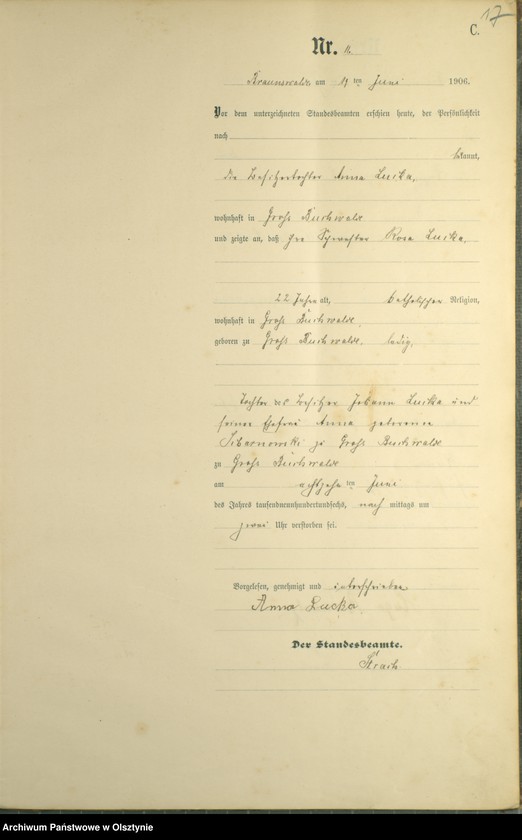 17
C.
Nr. 16.
Braunswalde am 19 ten Juni 1906.
Vor dem unterzeichneten Standesbeamten erschien heute, der Persönlichkeit
nach
bekannt,
die Besitzertochter Anna Lucka,
wohnhaft in Groß Buchwalde
und zeigte an, daß ihre Schwester Rosa Lucka,
22 Jahre alt, katholischer Religion,
wohnhaft in Groß Buchwalde,
geboren zu Groß Buchwalde, ledig,
Tochter des Besitzer Johann Lucka und
seiner Ehefrau Anna geborene
zu Groß Buchwalde
zu Groß Buchwalde
am achtzehn ten Juni
des Jahres tausendneunhundertundsechs, nach mittags um
zwei Uhr verstorben sei.
Vorgelesen, genehmigt und unterschrieben
Anna Lucka
Der Standesbeamte.
Archiwum Państwowe w Olsztynie